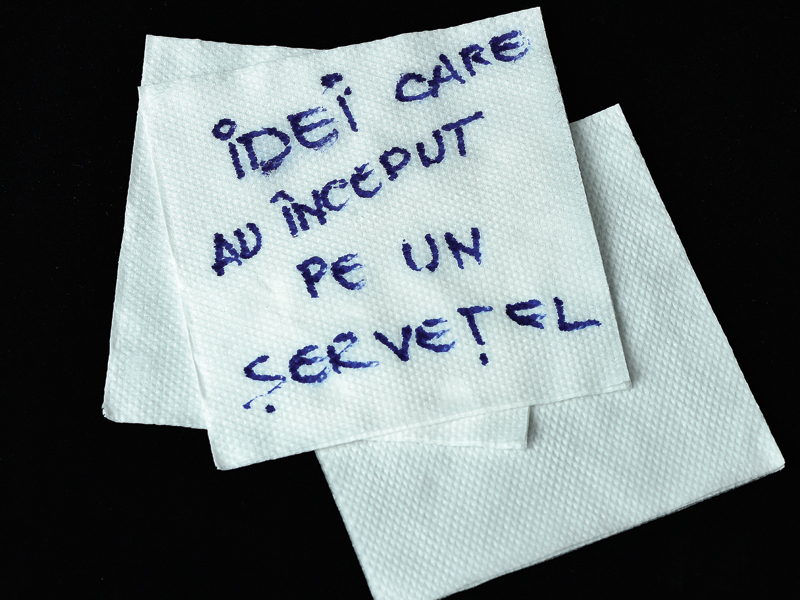 IDEI CARE
AU ÎNCEPUT
PE UN
ȘERVEȚEL